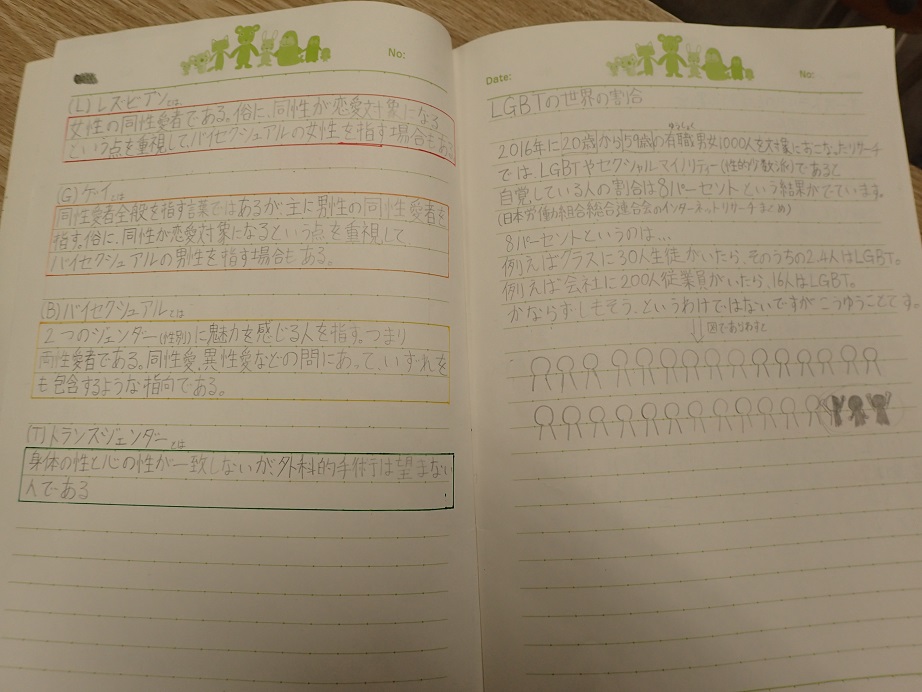 No:
(L)レズビアンとは
女性の同性愛者である。俗に、同性が恋愛対象になる
という点を重視して、バイセクシュアルの女性を指す場合もある
(G)ゲイとは
同性愛者全般を指す言葉ではあるが、主に男性の同性愛者を
指す。俗に、同性が恋愛対象になるという点を重視して
バイセクシュアルの男性を指す場合もある。
(B)バイセクシュアルとは
2つのジェンダー(性別)に魅力を感じる人を指す。つまり
両性愛者である。同性愛、異性愛などの間にあって、いずれを
も包含するような指向である。
(T)トランスジェンダーとは
身体の性と心の性が一致しないが、外科的手術は望まない
人である
Date:
No:
LGBTの世界の割合
ゆうしょく
2016年に20歳から59歳の有職男女1000人を対象におこなったリサーチ
では、LGBTやセクシャルマイノリティー(性的少数派)であると
自覚している人の割合は8パーセントという結果がでています。
(日本労働組合総合連合会のインターネットリサーチまとめ)
8パーセントというのは...
例えばクラスに30人生徒がいたら、そのうちの2.4人はLGBT。
例えば会社に200人従業員がいたら、16人はLGBT。
かならずしもそう、というわけではないですがこうゆうことです
図であらわすと